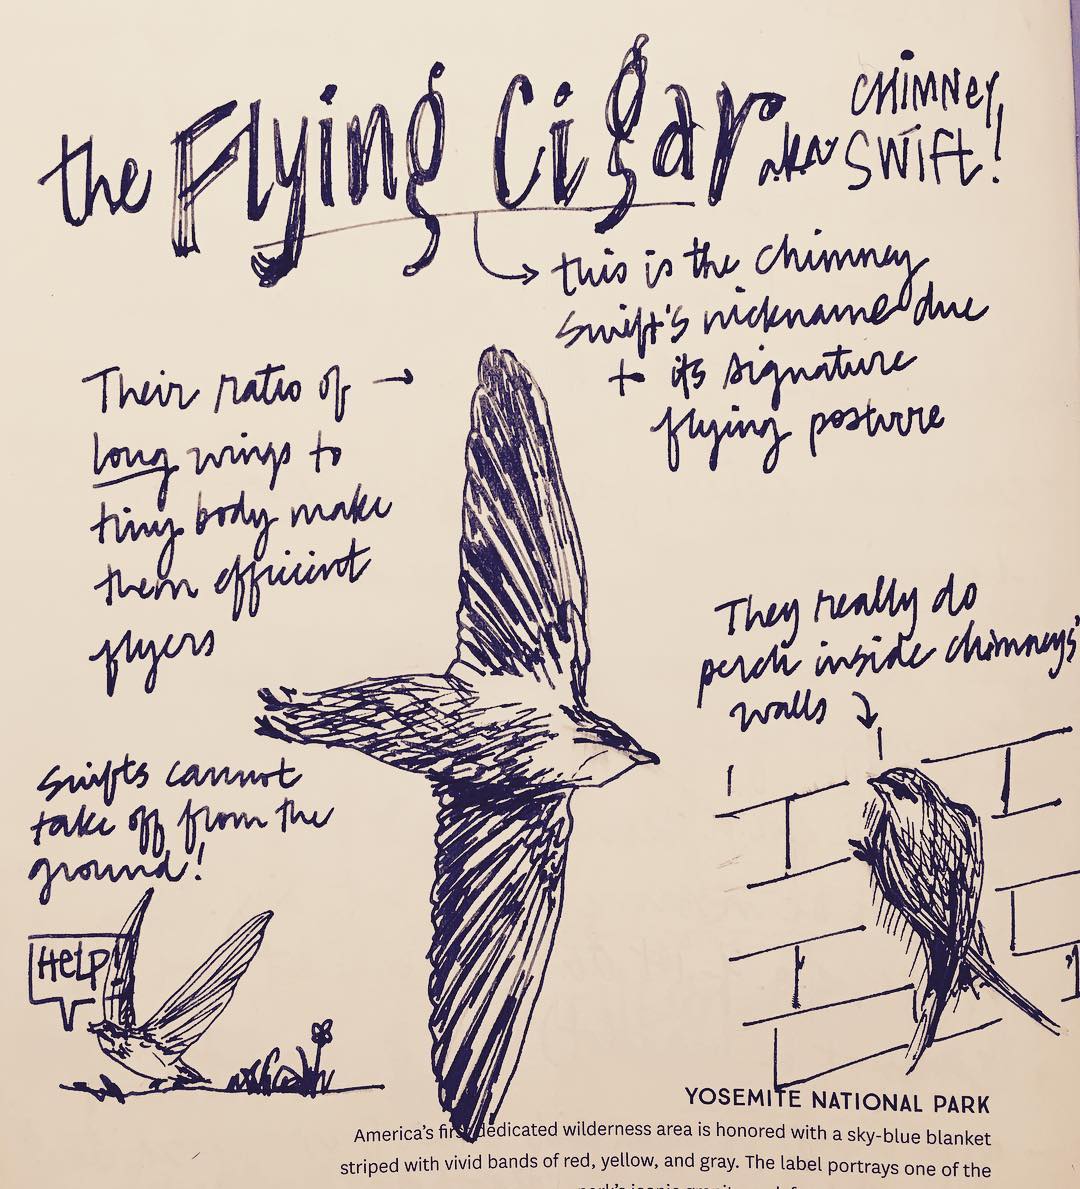 the Flying Cigar aka CHIMNey
SWift!
this is the chimney
swift's nickname due
to its signature
flying posture
Their ratio of →
long wings to
tiny body make
them efficient
flyers
They really do
perch inside chimneys'
walls
Swifts cannot
take off from the
ground!
HeLP!
YOSEMITE NATIONAL PARK
America's first dedicated wilderness area is honored with a sky-blue blanket
striped with vivid bands of red, yellow, and gray. The label portrays one of the